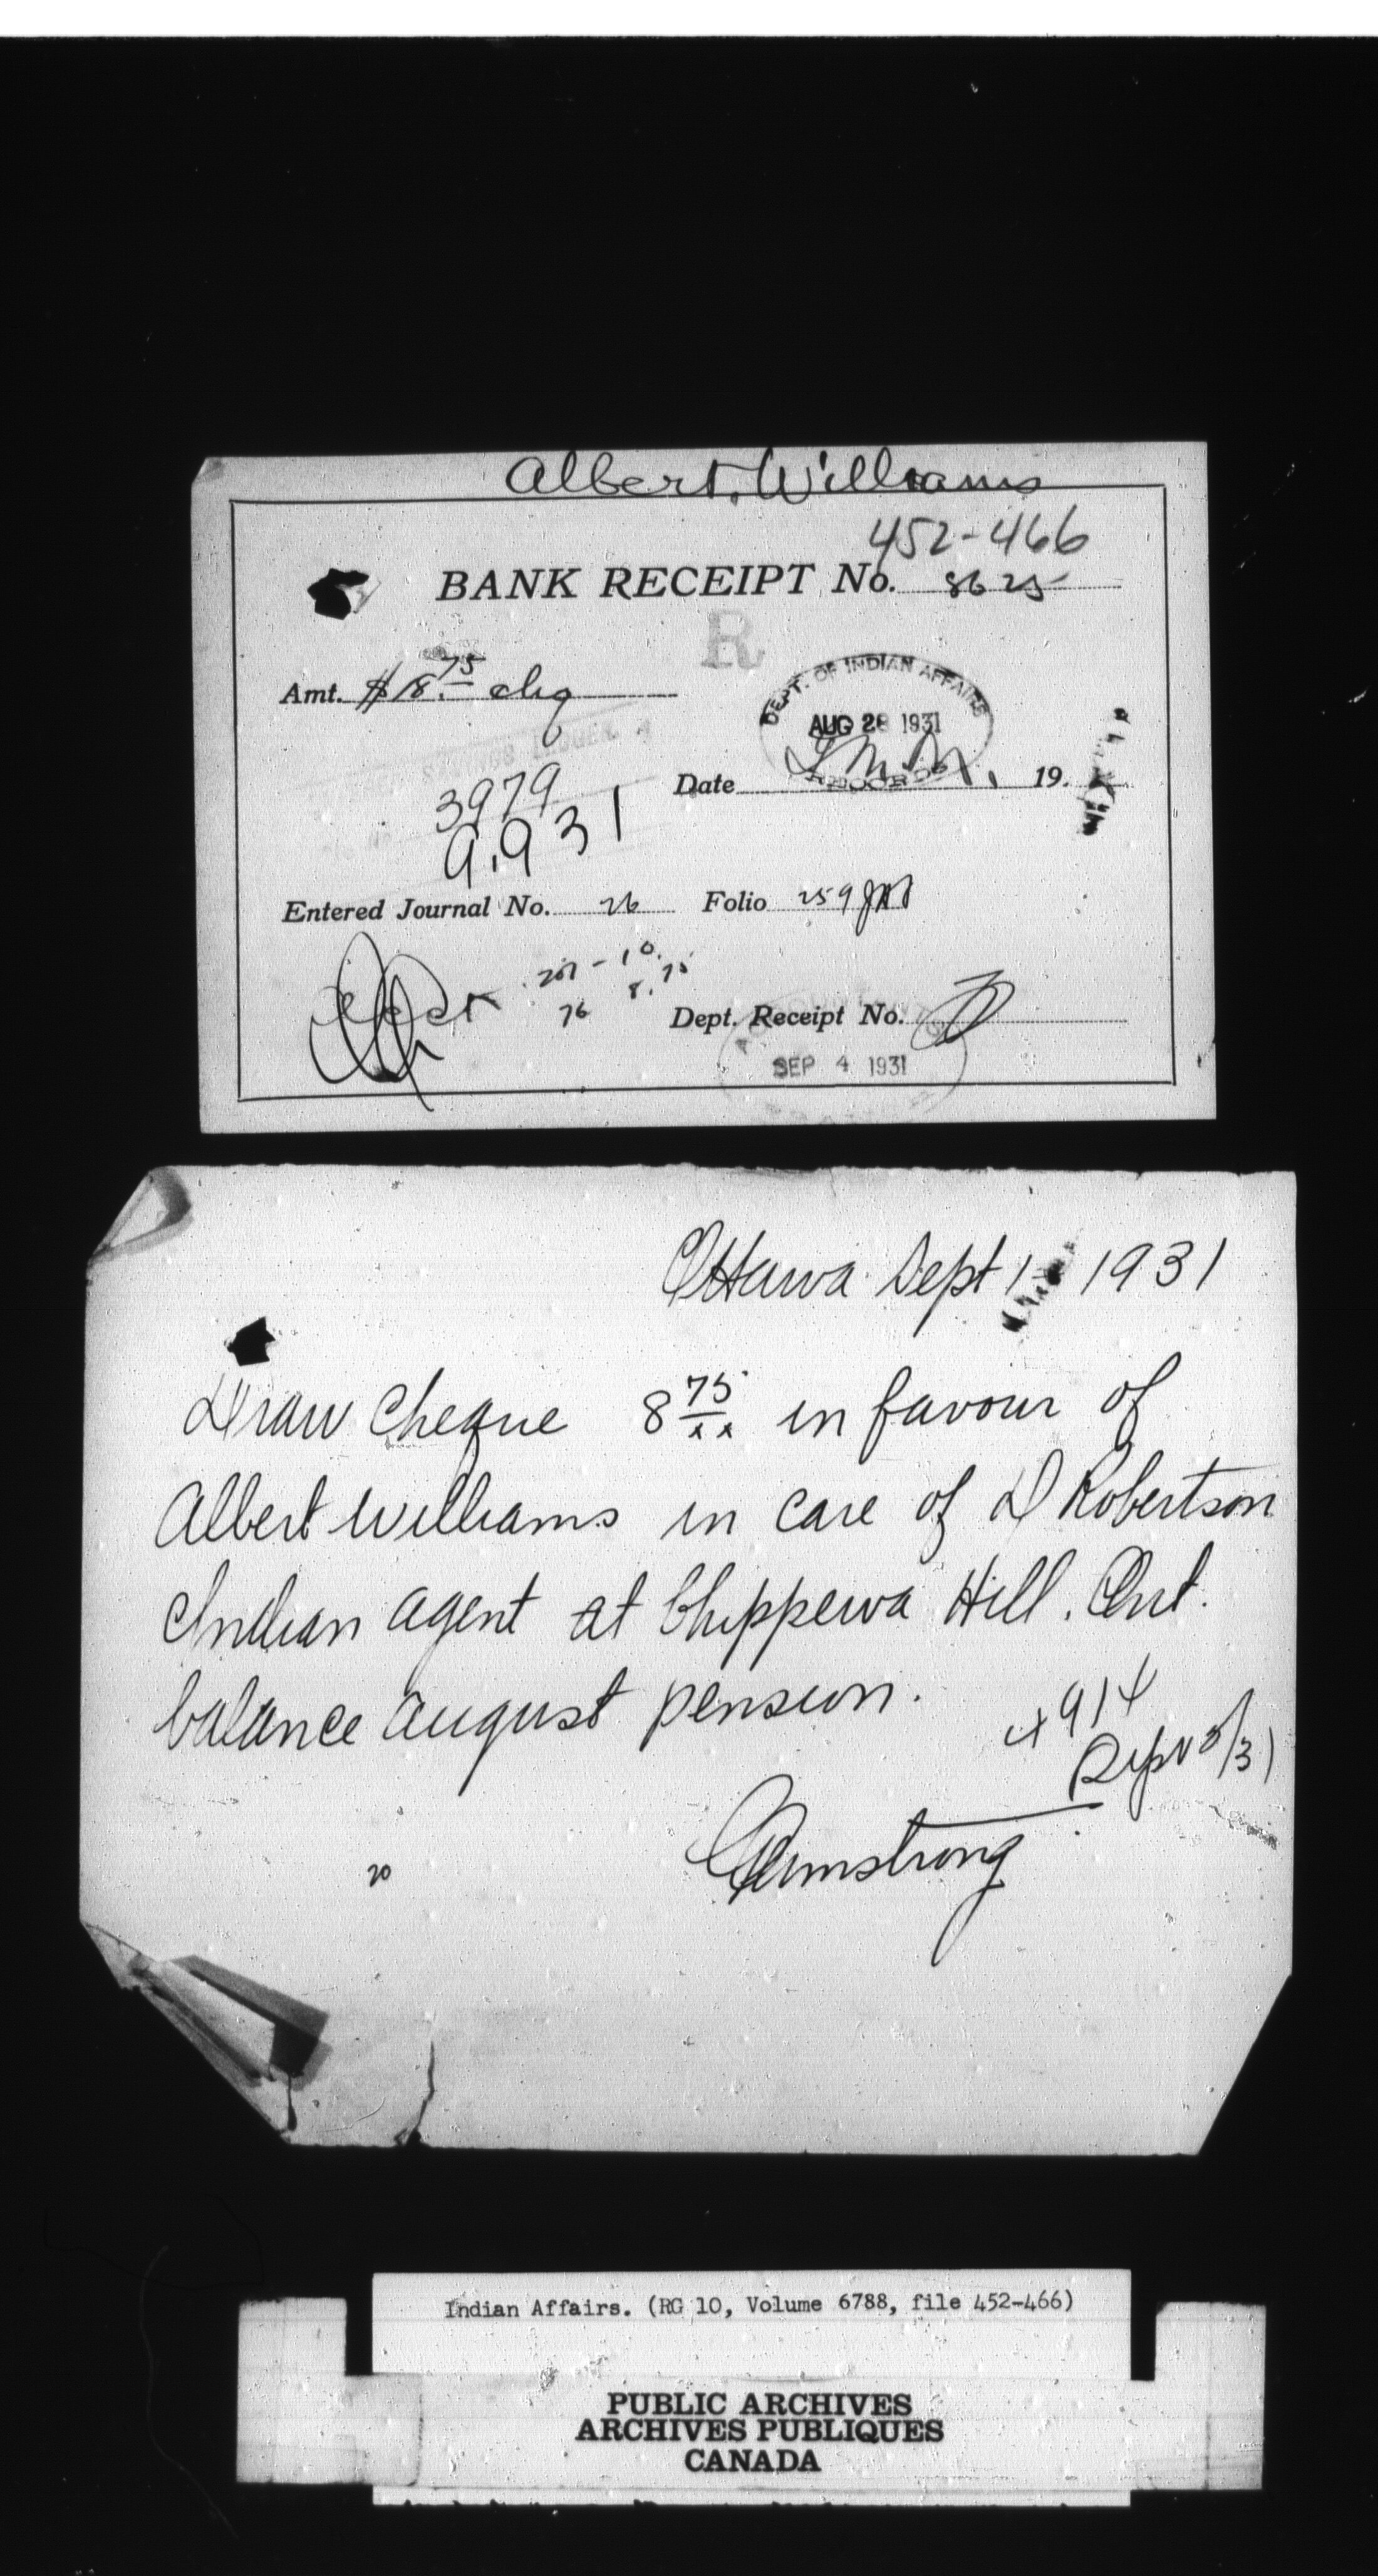 Albert Williams
452-466
BANK RECEIPT No. 8625
R
Amt. $18.75 chq
DEPT. OF INDIAN AFFAIRS
AUG 28 1931
RECORDS
Date 19.
3979
9.931
Entered Journal No. 26 Folio 259
207-10.
76 8.75
Dept. Receipt No.
SEP 4 1931
Ottawa Sept 1 1931
Draw Cheque 8 75/xx in favour of
Albert Williams in care of D Robertson
Indian agent at Chippewa Hill. Ont.
balance august pension.
4914
Sept 3/31
Armstrong
20
Indian Affairs. (RG 10, Volume 6788, file 452-466)
PUBLIC ARCHIVES
ARCHIVES PUBLIQUES
CANADA